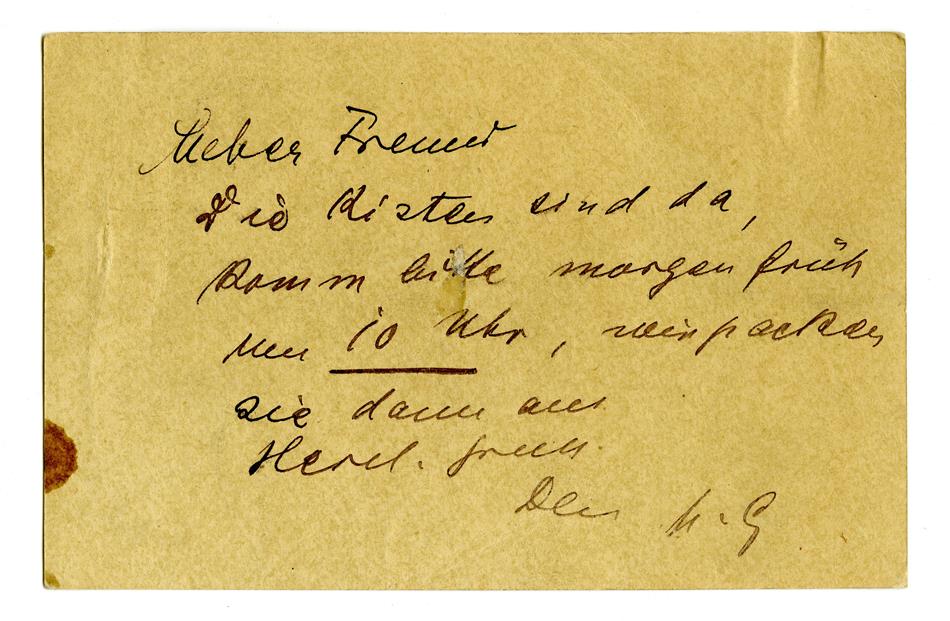 Lieber Freund
Die Kisten sind da,
komm bitte morgen früh
um 10 Uhr, wir packen
sie dann aus
Herzl. Gruss.
Dein M. G